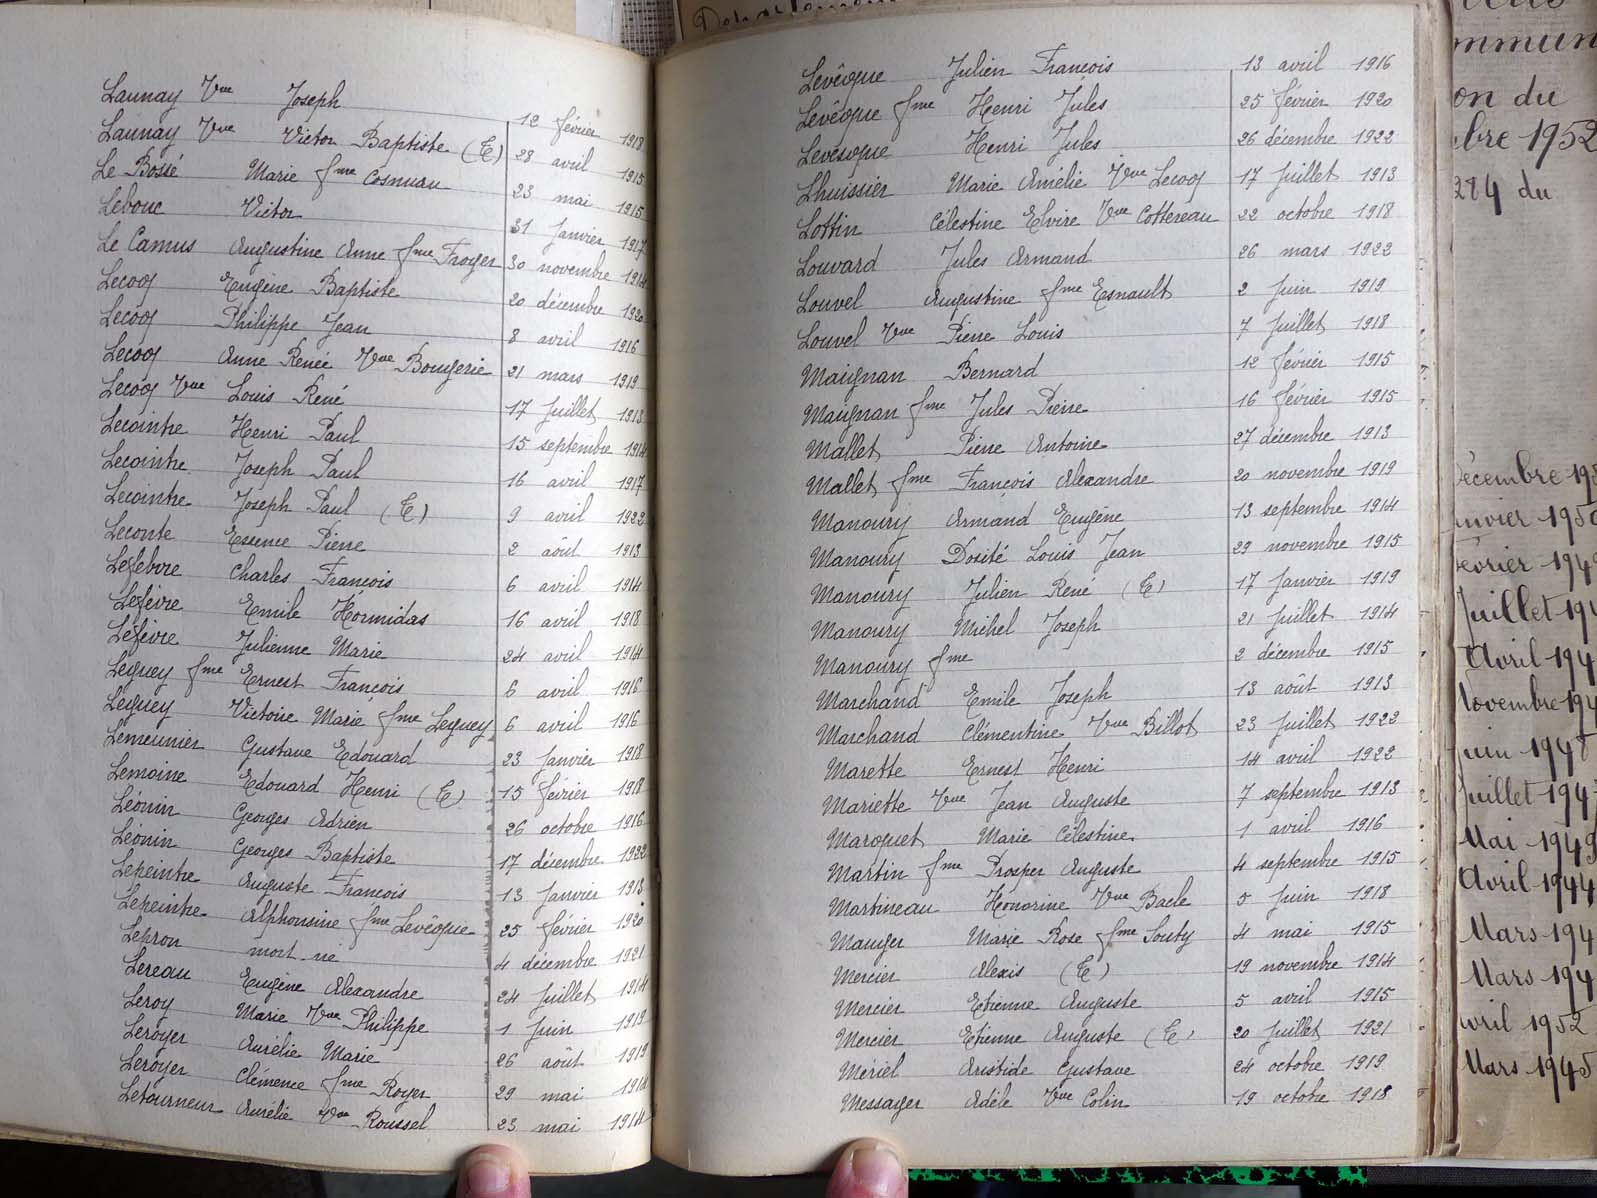 Launay Vve Joseph 12 février 1918
Launay Vve Victor Baptiste (E) 28 avril 1915
Le Bossé Marie fme Cosnuau 23 mai 1915
Lebouc Victor 31 Janvier 1917
Le Camus Augustine Anne fme Froger 30 novembre 1914
Lecoq Eugène Baptiste 20 décembre 1920
Lecoq Philippe Jean 8 avril 1916
Lecoq Anne Renée Vve Bougerie 21 mars 1919
Lecoq Vve Louis René 17 Juillet 1913
Lecointre Henri Paul 15 septembre 1914
Lecointre Joseph Paul 16 avril 1917
Lecointre Joseph Paul (E) 9 avril 1922
Leconte Pierre 2 août 1913
Lefebvre Charles François 6 avril 1914
Lefèvre Emile Hormidas 16 avril 1918
Lefèvre Julienne Marie 24 avril 1914
Leguey fme Ernest François 6 avril 1916
Leguey Victoire Marie fme Leguey 6 avril 1916
Lemeunier Gustave Edouard 23 Janvier 1918
Lemoine Edouard Henri (E) 15 février 1918
Léonin Georges Adrien 26 octobre 1916
Léonin Georges Baptiste 17 décembre 1922
Lepeintre Auguste François 13 Janvier 1913
Lepeintre Alphonsine fme Levêque 25 février 1920
Lepron mort-né 4 décembre 1921
Lereau Eugène Alexandre 24 Juillet 1914
Leroy Marie Vve Philippe 1 Juin 1919
Leroyer Aurélie Marie 26 août 1919
Leroyer Clémence fme Royer 29 mai 1914
Letourneur Aurélie Vve Roussel 23 mai 1914
Levêque Julien François 13 avril 1916
Levêque fme Henri Jules 25 février 1920
Levesque Henri Jules 26 décembre 1922
Lhuissier Marie Amélie Vve Lecoq 17 Juillet 1913
Lottin Célestine Elvire Vve Cottereau 22 octobre 1918
Louvard Jules Armand 26 mars 1922
Louvel Augustine fme Esnault 2 Juin 1919
Louvel Vve Pierre Louis 7 Juillet 1918
Maignan Bernard 12 février 1915
Maignan fme Jules Pierre 16 février 1915
Mallet Pierre Antoine 27 décembre 1913
Mallet fme François Alexandre 20 novembre 1919
Manoury Armand Eugène 13 septembre 1914
Manoury Dosité Louis Jean 29 novembre 1915
Manoury Julien René (E) 17 Janvier 1919
Manoury Michel Joseph 21 Juillet 1914
Manoury fme 2 décembre 1915
Marchand Emile Joseph 13 août 1913
Marchand Clémentine Vve Billot 23 Juillet 1922
Marette Ernest Henri 14 avril 1922
Mariette Vve Jean Auguste 7 septembre 1913
Marquet Marie Célestine 1 avril 1916
Martin fme Prosper Auguste 4 septembre 1915
Martineau Honorine Vve Bacle 5 Juin 1918
Mauger Marie Rose fme Souty 4 mai 1915
Mercier Alexis (E) 19 novembre 1914
Mercier Etienne Auguste 5 avril 1915
Mercier Etienne Auguste (E) 20 Juillet 1921
Mériel Aristide Gustave 24 octobre 1919
Messager Adèle Vve Colin 19 octobre 1918
mmun
on du
bre 1952
284 du
écembre 195
nvier 1950
évrier 194
Juillet 194
Avril 194
Novembre 194
Juin 1948
Juillet 194
Mai 1949
Avril 1944
Mars 194
Mars 194
vril 1952
Mars 1945